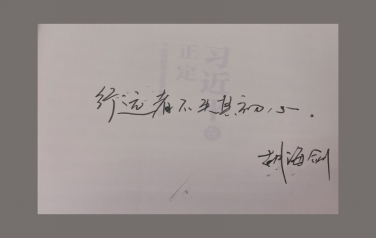 习近
正定
行远者不失其初心.
海